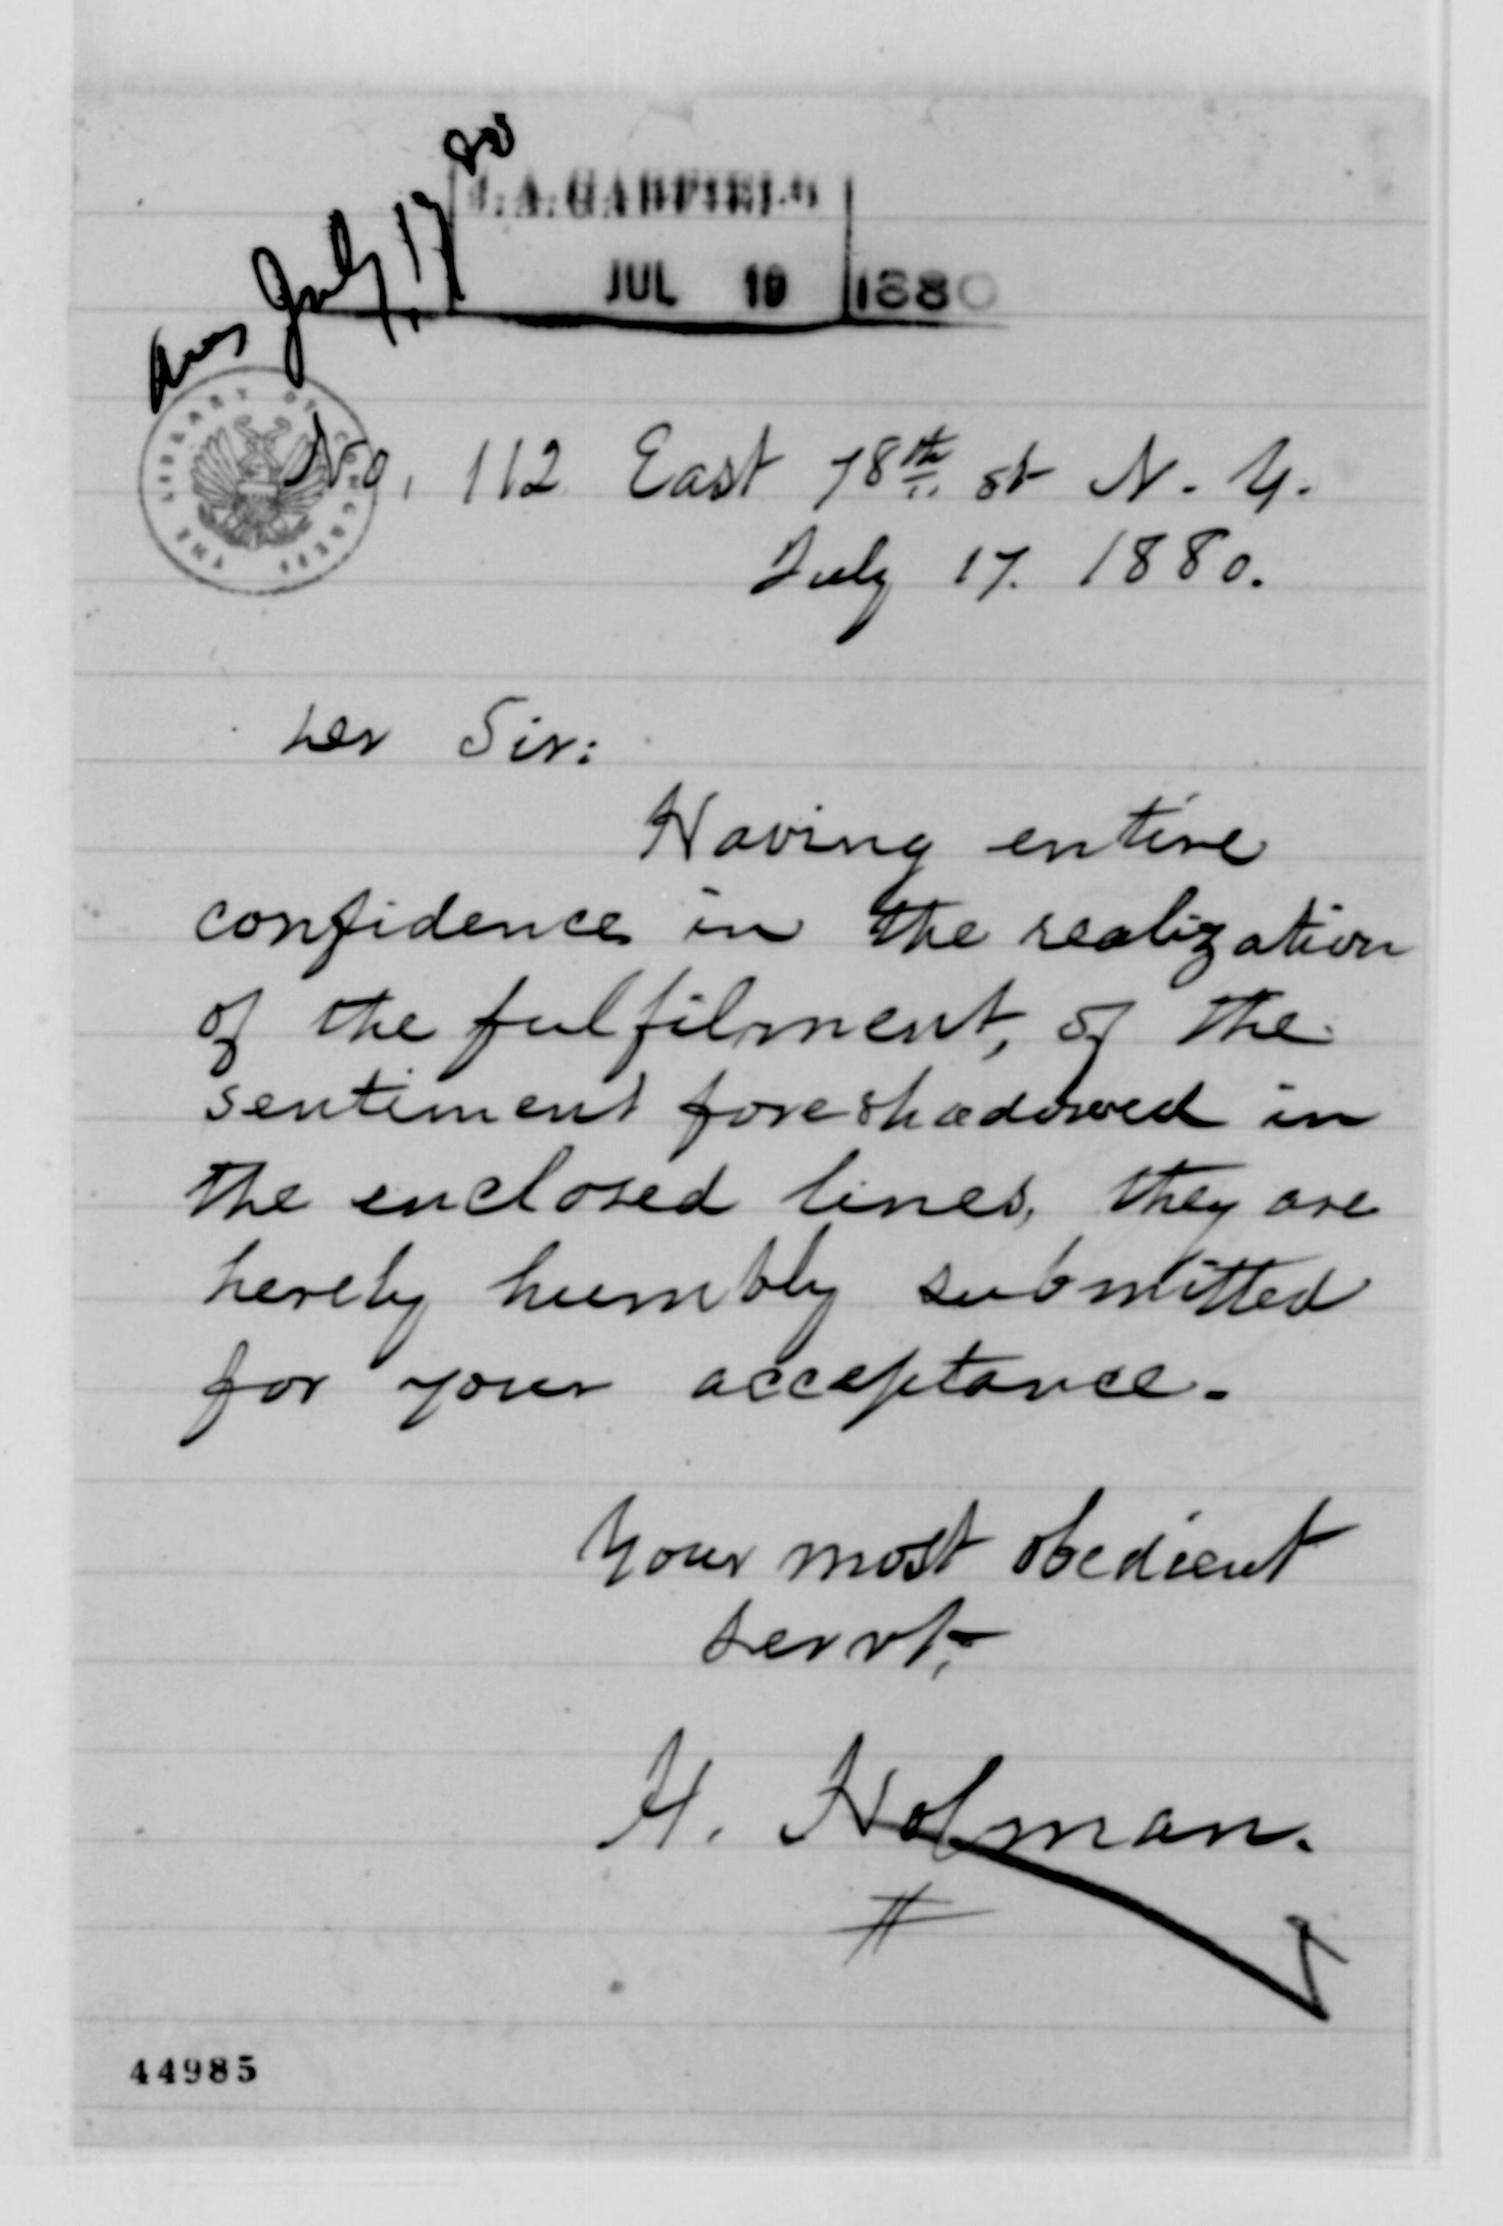 Ans July 17 80
J. A. GARFIELD
JUL 19 1880
THE LIBRARY OF CONGRESS
No. 112 East 78th st N. Y.
July 17. 1880.
Sir:
Having entire
confidence in the realization
of the fulfilment, of the
sentiment foreshadowed in
the enclosed lines, they are
hereby humbly submitted
for your acceptance.
Your most obedient
servt,
H. Holman.
44985